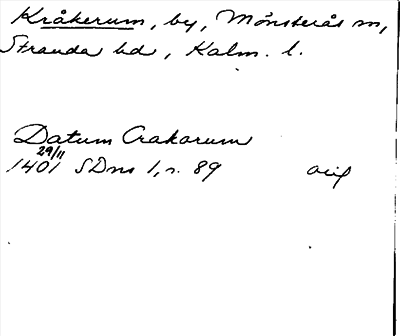 Kråkerum, by, Mönsterås sn,
Stranda hd, Kalm. l.
Datum Crakarum
29/11
1401 SDns 1, s. 89 orig